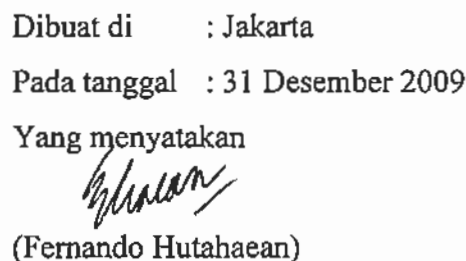 Dibuat di : Jakarta
Pada tanggal : 31 Desember 2009
Yang menyatakan
(Fernando Hutahaean)